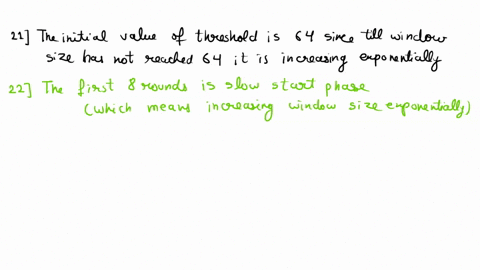 21] The initial value of threshold is 64 since till window
size has not reached 64 it is increasing exponentially
22] The first 8 rounds is slow start phase
(which means increasing window size exponentially)